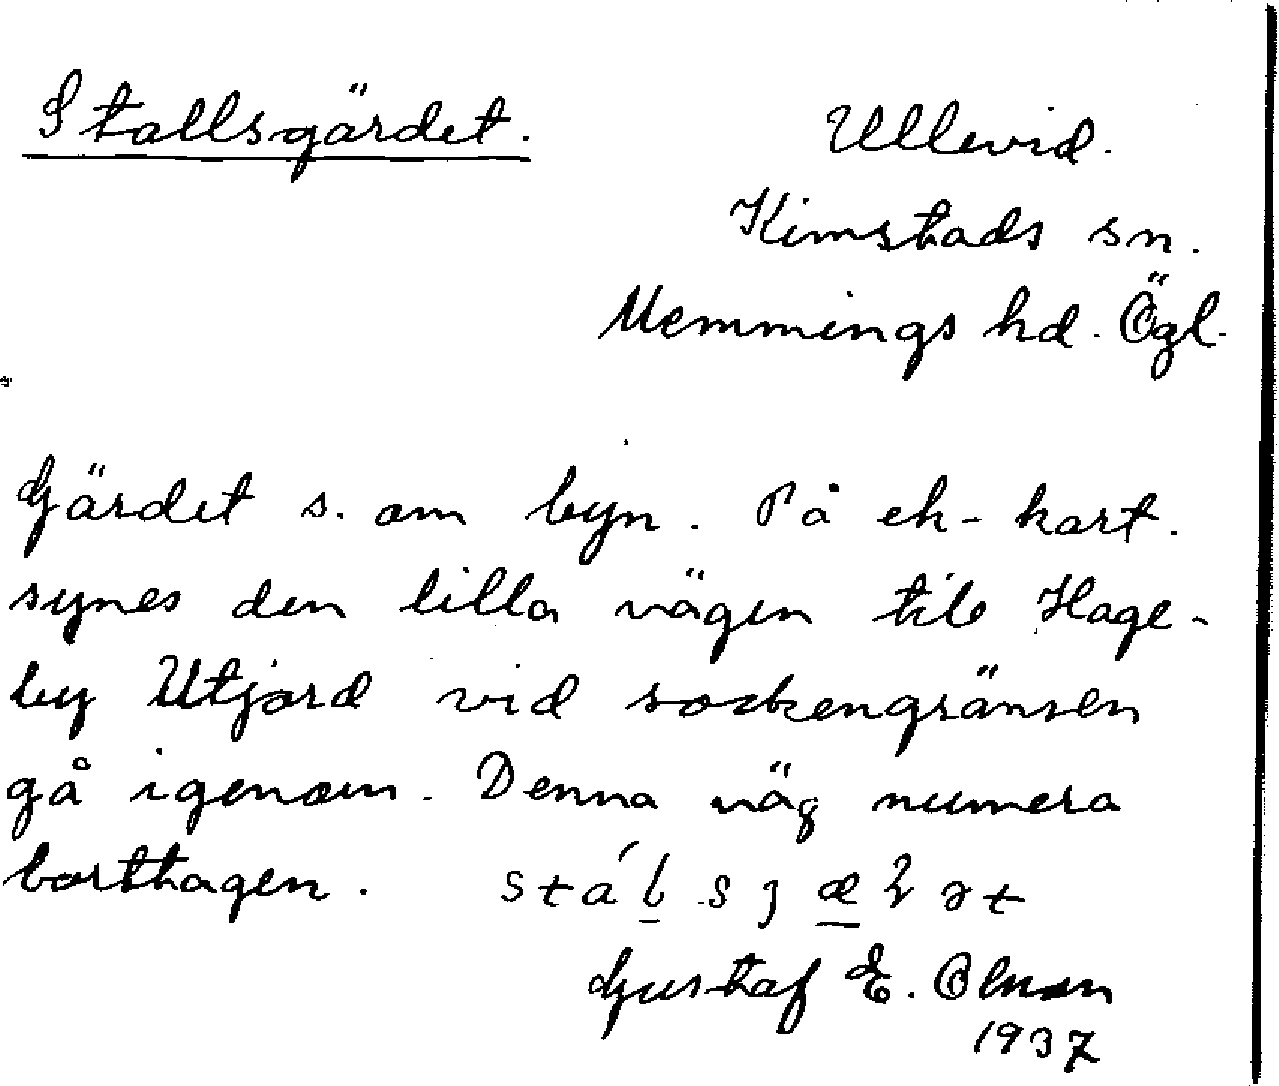 Stallsgärdet.
Ullevid.
Kimstads sn.
Memmings hd. Ögl.
Gärdet s. om byn. På ek-kart.
synes den lilla vägen till Hage-
by Utjord vid sockengränsen
gå igenom. Denna väg numera
borttagen.
Gustaf E.
1937